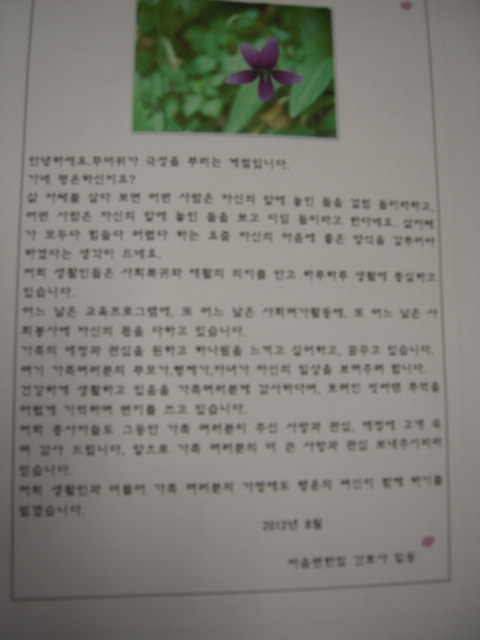 안녕하세요.무더위가 극성을 부리는 계절입니다.
가내 평온하신지요?
삶 자체를 살다 보면 어떤 사람은 자신의 앞에 놓인 돌을 걸림 돌이라하고,
어떤 사람은 자신의 앞에 놓인 돌을 보고 디딤 돌이라고 한다네요. 삶자체
가 모두다 힘들다 어렵다 하는 요즘 자신의 마음에 좋은 양식을 갖추어야
하겠다는 생각이 드네요.
저희 생활인들은 사회복귀와 재활의 의지를 안고 하루하루 생활에 충실하고
있습니다.
어느 날은 교육프로그램에, 또 어느 날은 사회여가활동에, 또 어느 날은 사
회봉사에 자신의 몫을 다하고 있습니다.
가족의 애정과 관심을 원하고 하나됨을 느끼고 싶어하고, 꿈꾸고 있습니다.
여기 가족여러분의 부모가,형제가,자녀가 자신의 일상을 보여주려 합니다.
건강하게 생활하고 있음을 가족여러분께 감사하다며, 추억을
어렵게 기억하며 편지를 쓰고 있습니다.
저희 종사자들도 그동안 가족 여러분이 주신 사랑과 관심, 애정에 고개 숙
여 감사 드립니다, 앞으로 가족 여러분의 더 큰 사랑과 관심 보내주시리라
믿습니다.
저희 생활인과 더불어 가족 여러분의 가정에도 행운의 여신이 함께 하기를
빌겠습니다.
2012년 8월
마음편한집 간호사 일동